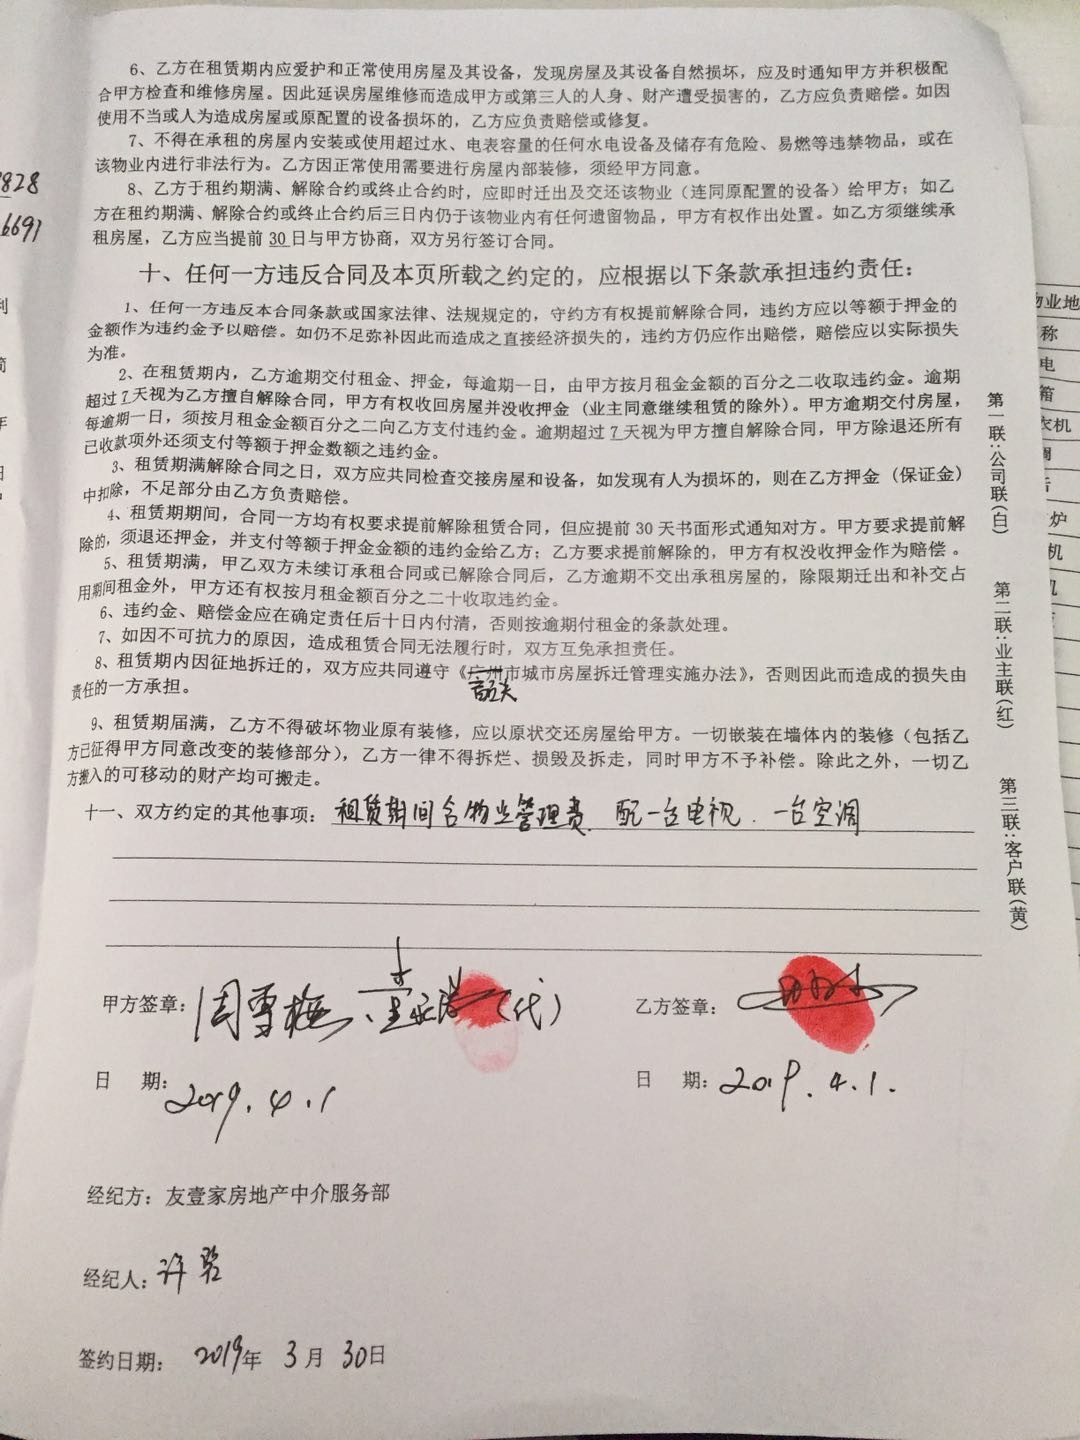 6、乙方在租赁期内应爱护和正常使用房屋及其设备，发现房屋及其设备自然损坏，应及时通知甲方并积极配
合甲方检查和维修房屋。因此延误房屋维修而造成甲方或第三人的人身、财产遭受损害的，乙方应负责赔偿。如因
使用不当或人为造成房屋或原配置的设备损坏的，乙方应负责赔偿或修复。
7、不得在承租的房屋内安装或使用超过水、电表容量的任何水电设备及储存有危险、易燃等违禁物品，或在
该物业内进行非法行为。乙方因正常使用需要进行房屋内部装修，须经甲方同意。
8、乙方于租约期满、解除合约或终止合约时，应即时迁出及交还该物业（连同原配置的设备）给甲方；如乙
方在租约期满、解除合约或终止合约后三日内仍于该物业内有任何遗留物品，甲方有权作出处置。如乙方须继续承
租房屋，乙方应当提前 30 日与甲方协商，双方另行签订合同。
十、任何一方违反合同及本页所载之约定的，应根据以下条款承担违约责任：
1、任何一方违反本合同条款或国家法律、法规规定的，守约方有权提前解除合同，违约方应以等额于押金的
金额作为违约金予以赔偿。如仍不足弥补因此而造成之直接经济损失的，违约方仍应作出赔偿，赔偿应以实际损失
为准。
2、在租赁期内，乙方逾期交付租金、押金，每逾期一日，由甲方按月租金金额的百分之二收取违约金。逾期
超过 7 天视为乙方擅自解除合同，甲方有权收回房屋并没收押金（业主同意继续租赁的除外）。甲方逾期交付房屋，
每逾期一日，须按月租金金额百分之二向乙方支付违约金。逾期超过 7 天视为甲方擅自解除合同，甲方除退还所有
已收款项外还须支付等额于押金数额之违约金。
3、租赁期满解除合同之日，双方应共同检查交接房屋和设备，如发现有人为损坏的，则在乙方押金（保证金）
中扣除，不足部分由乙方负责赔偿。
4、租赁期期间，合同一方均有权要求提前解除租赁合同，但应提前 30 天书面形式通知对方。甲方要求提前解
除的，须退还押金，并支付等额于押金金额的违约金给乙方；乙方要求提前解除的，甲方有权没收押金作为赔偿。
5、租赁期满，甲乙双方未续订承租合同或已解除合同后，乙方逾期不交出承租房屋的，除限期迁出和补交占
用期间租金外，甲方还有权按月租金额百分之二十收取违约金。
6、违约金、赔偿金应在确定责任后十日内付清，否则按逾期付租金的条款处理。
7、如因不可抗力的原因，造成租赁合同无法履行时，双方互免承担责任。
8、租赁期内因征地拆迁的，双方应共同遵守《广州市城市房屋拆迁管理实施办法》，否则因此而造成的损失由
责任的一方承担。
9、租赁期届满，乙方不得破坏物业原有装修，应以原状交还房屋给甲方。一切嵌装在墙体内的装修（包括乙
方已征得甲方同意改变的装修部分），乙方一律不得拆烂、损毁及拆走，同时甲方不予补偿。除此之外，一切乙
方搬入的可移动的财产均可搬走。
十一、双方约定的其他事项：租赁期间含物业管理费、配一台电视、一台空调
甲方签章：周雪梅、（代）
乙方签章：
日 期：2019.4.1
日 期：2019.4.1.
经纪方：友壹家房地产中介服务部
经纪人：许
签约日期： 2019年 3月 30日
第一联：公司联（白）
第二联：业主联（红）
第三联：客户联（黄）
828
6691
物业地
称
电
箱
衣机
炉
机